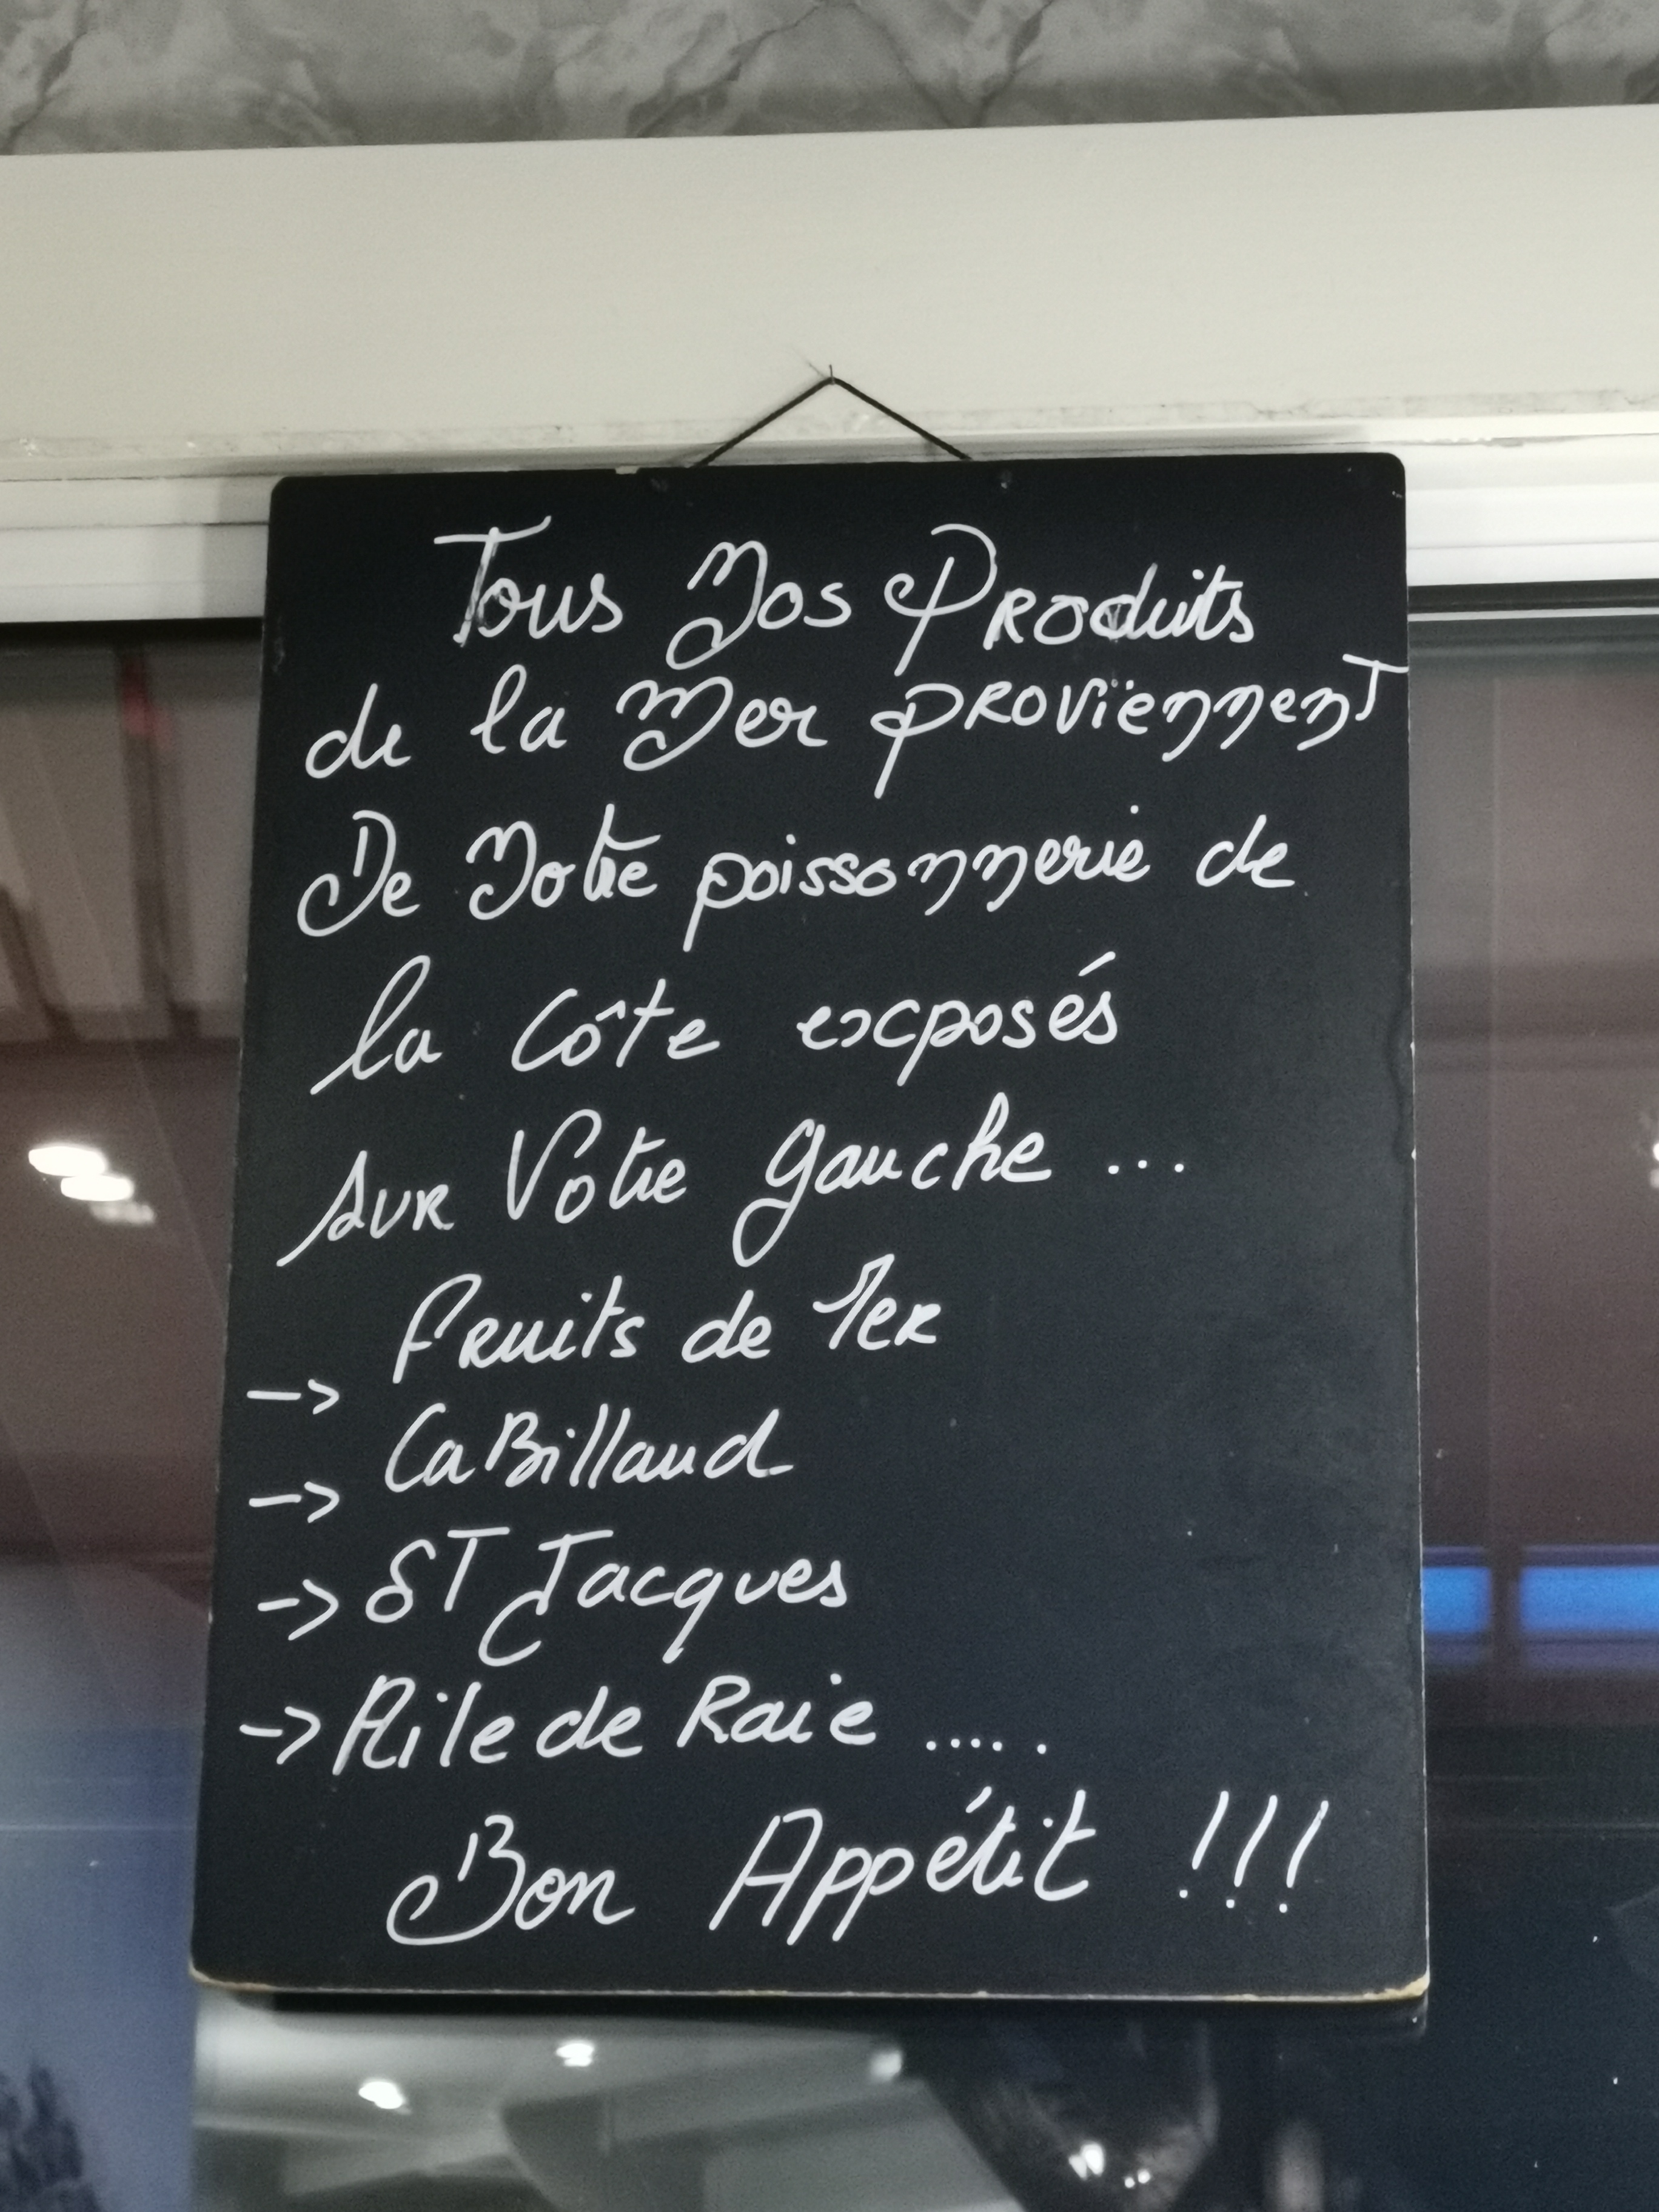 Tous Nos Produits
de la Mer PROViennenT
De Notre poissonnerie de
la Côte exposés
sur Votre gauche ...
-> fruits de Mer
-> CaBillaud
-> ST Jacques
-> Aile de Raie .....
Bon Appétit !!!